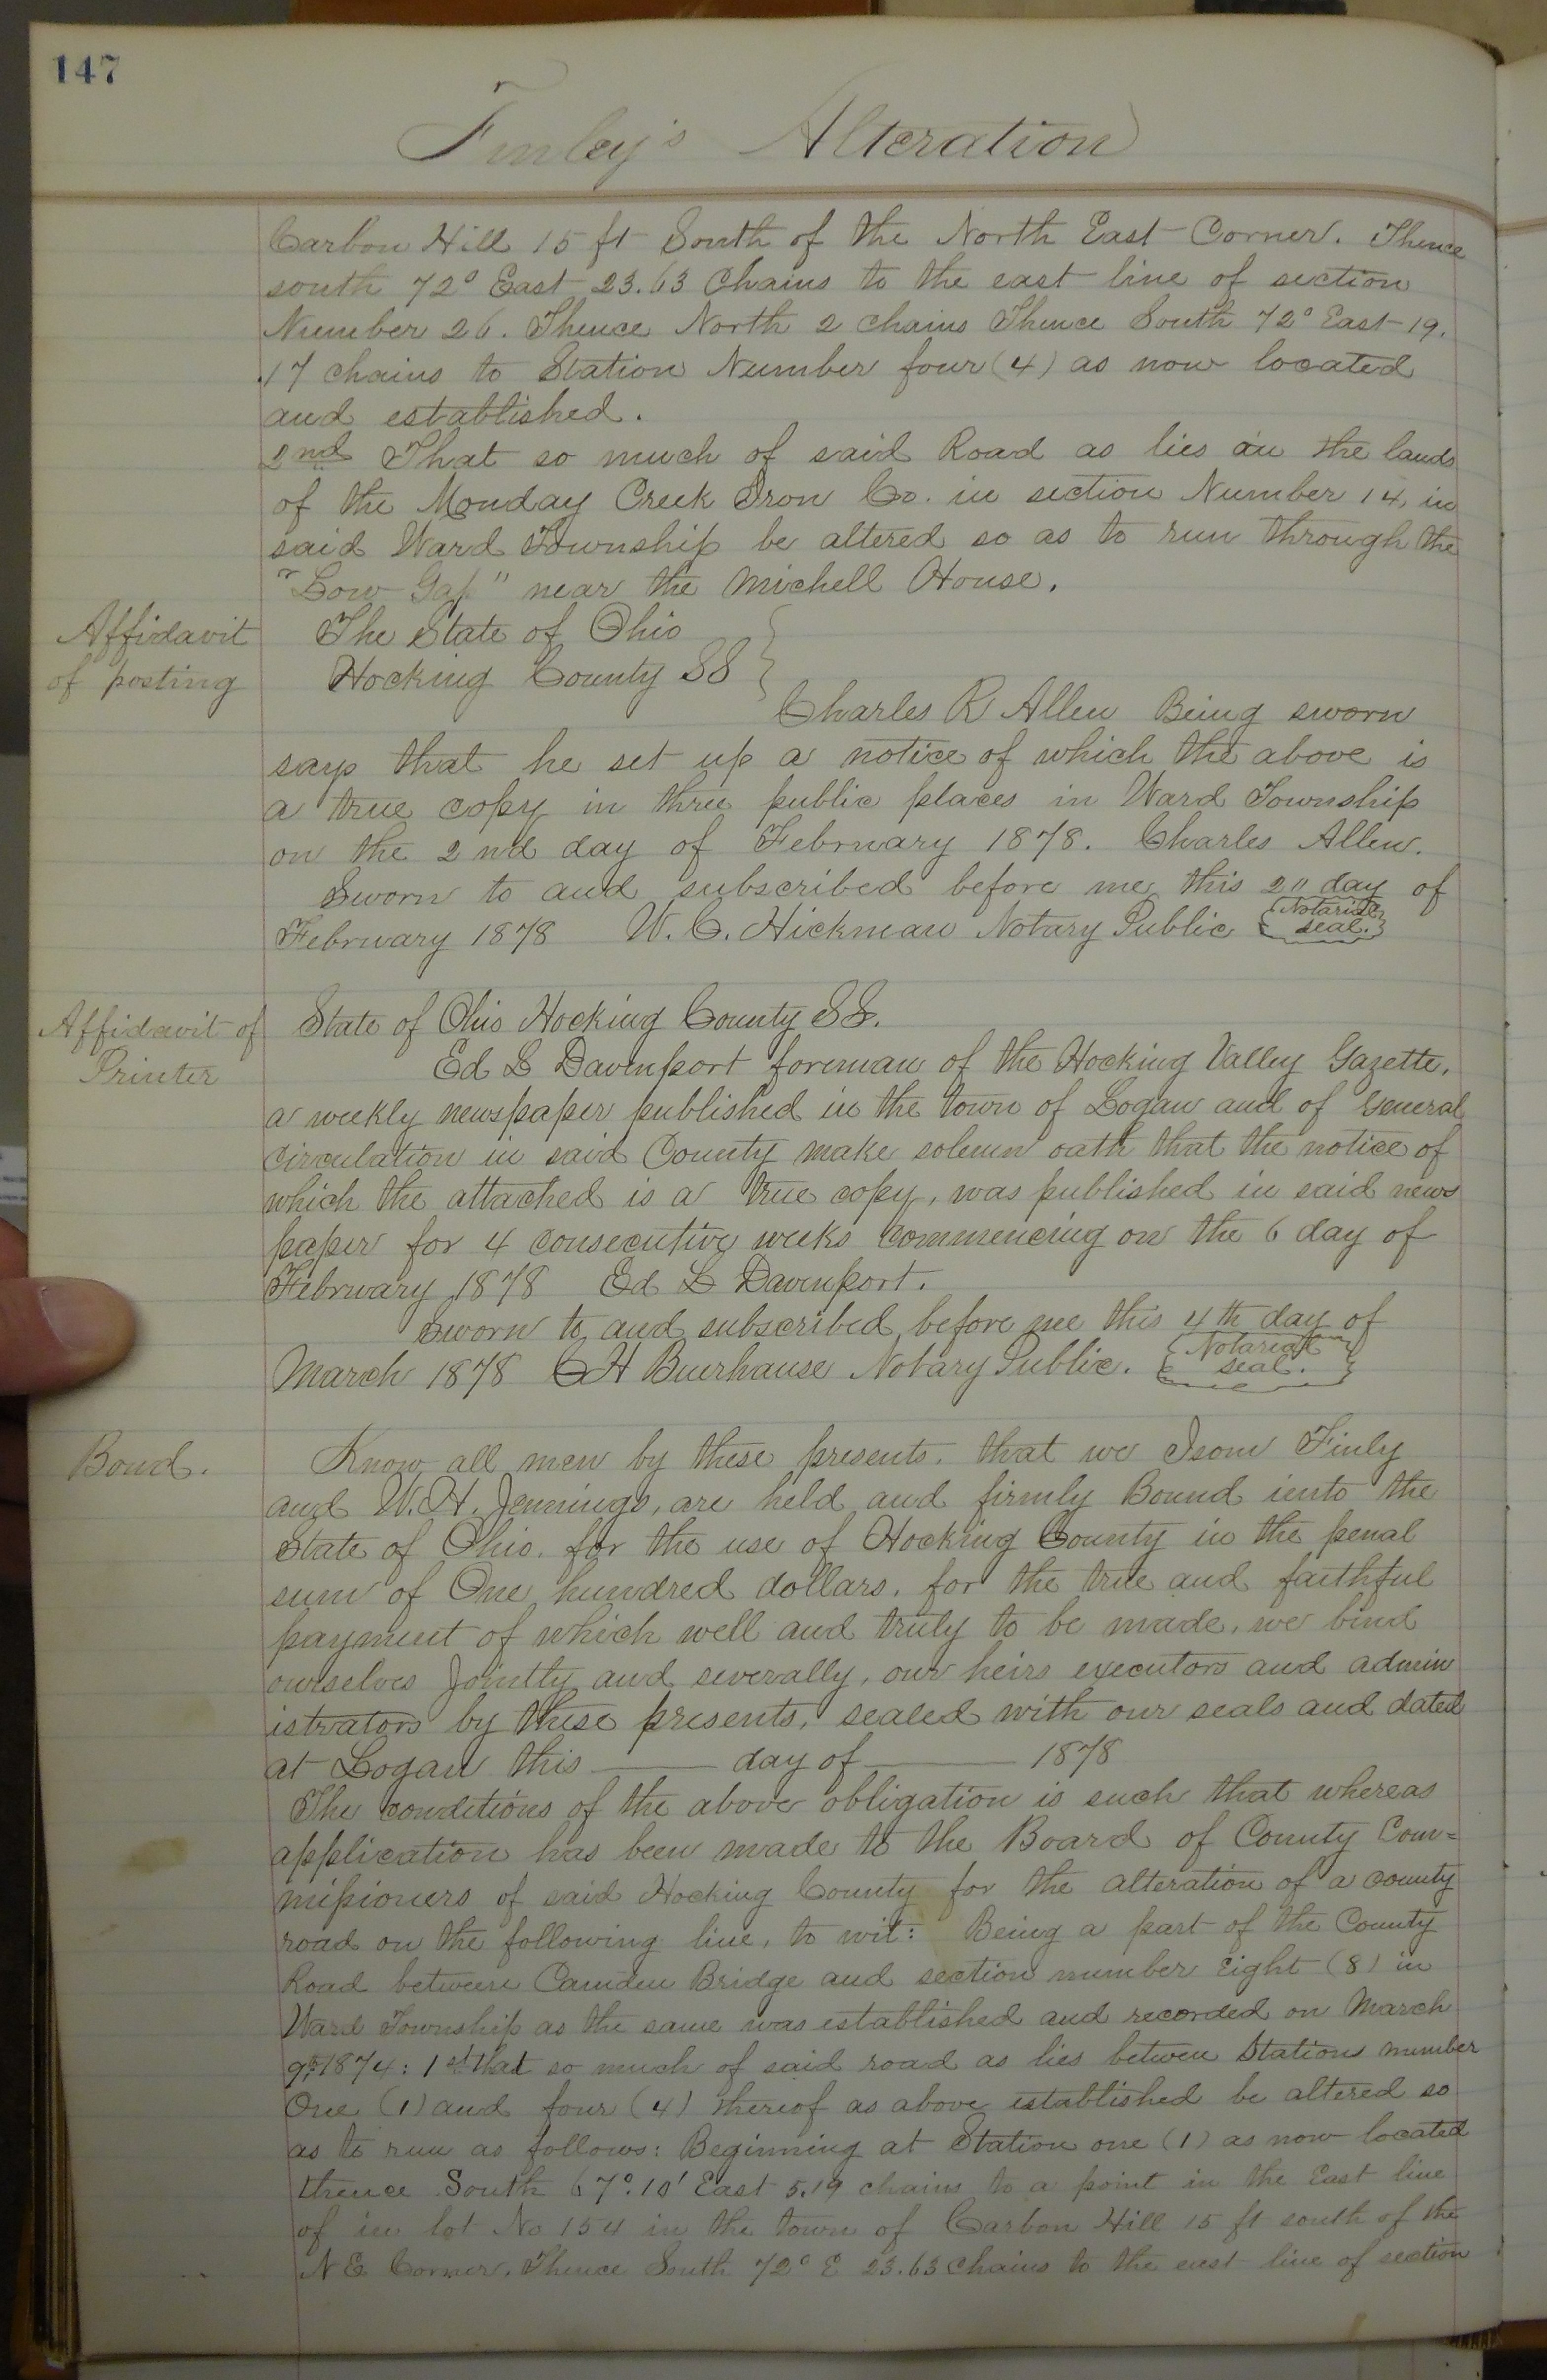 147
Finley's Alteration
Carbon Hill 15 ft South of the North East Corner. Thence
south 72° East 23.63 Chains to the east line of section
Number 26. Thence North 2 chains Thence South 72° East 19.
.17 chains to Station Number four (4) as now located
and established.
2nd That so much of said Road as lies on the lands
of the Monday Creek Iron Co. in section Number 14, in
said Ward Township be altered so as to run through the
"Low Gap" near the Michell House.
Affidavit
of posting
The State of Ohio
Hocking County SS
Charles R Allen Being sworn
says that he set up a notice of which the above is
a true copy in three public places in Ward Township
on the 2nd day of February 1878. Charles Allen.
Sworn to and subscribed before me this 2" day of
February 1878 W. C. Hickman Notary Public Notarial
seal.
Affidavit of
Printer
State of Ohio Hocking County SS.
Ed L Davenport foreman of the Hocking Valley Gazette,
a weekly newspaper published in the town of Logan and of General
circulation in said County make solemn oath that the notice of
which the attached is a true copy, was published in said news
paper for 4 consecutive weeks commencing on the 6 day of
February 1878 Ed L Davenport.
Sworn to and subscribed before me this 4th day of
March 1878 C H Buerhause Notary Public. Notarial
seal.
Bond.
Know all men by these presents. that we Isom Finly
and W. H. Jennings, are held and firmly Bound unto the
State of Ohio. for the use of Hocking County in the penal
sum of One hundred dollars. for the true and faithful
payment of which well and truly to be made, we bind
ourselves Jointly and severally, our heirs executors and admin
istrators by these presents, sealed with our seals and dated
at Logan this ——— day of ——— 1878
The conditions of the above obligation is such that whereas
application has been made to the Board of County Com=
missioners of said Hocking County for the alteration of a county
road on the following line, to wit: Being a part of the County
Road between Camden Bridge and section number Eight (8) in
Ward Township as the same was established and recorded on March
9th 1874: 1st That so much of said road as lies between Stations number
One (1) and four (4) thereof as above established be altered so
as to run as follows: Beginning at Station one (1) as now located
thence South 67° 10' East 5.19 chains to a point in the East line
of in lot No 154 in the town of Carbon Hill 15 ft south of the
N E Corner. Thence South 72° E 23.63 Chains to the east line of section